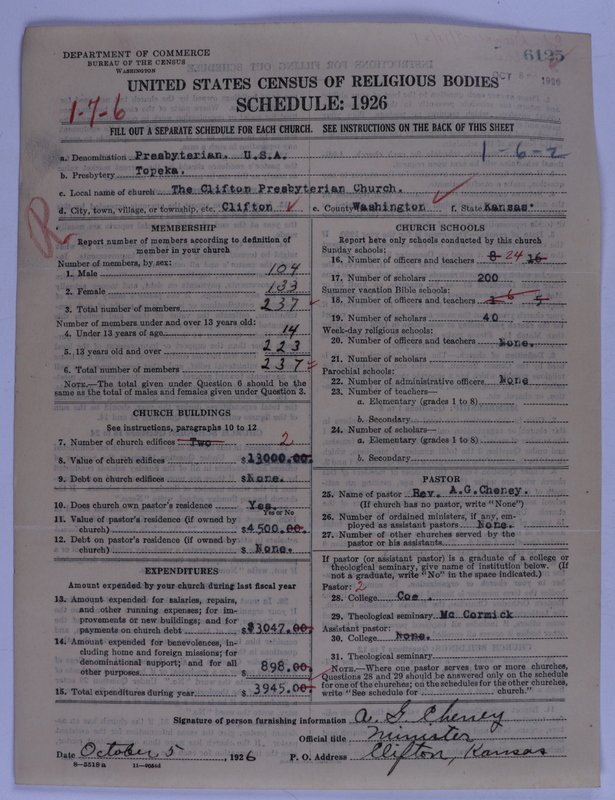 DEPARTMENT OF COMMERCE
BUREAU OF THE CENSUS
WASHINGTON
6125
OCT 1926
UNITED STATES CENSUS OF RELIGIOUS BODIES
SCHEDULE: 1926
1-7-6
FILL OUT A SEPARATE SCHEDULE FOR EACH CHURCH. SEE INSTRUCTIONS ON THE BACK OF THIS SHEET
a. Denomination Presbyterian. U.S.A. 1-6-2
b. Presbytery Topeka.
c. Local name of church The Clifton Presbyterian Church.
d. City, town, village, or township, etc. Clifton e. County Washington f. State Kansas.
R
MEMBERSHIP
Report number of members according to definition of
member in your church
Number of members, by sex:
1. Male 104
2. Female 133
3. Total number of members 237
Number of members under and over 13 years old:
4. Under 13 years of age 14
5. 13 years old and over 223
6. Total number of members 237
NOTE.—The total given under Question 6 should be the
same as the total of males and females given under Question 3.
CHURCH BUILDINGS
See instructions, paragraphs 10 to 12
7. Number of church edifices Two 2
8. Value of church edifices $13000.00.
9. Debt on church edifices $None.
10. Does church own pastor's residence Yes.
Yes or No
11. Value of pastor's residence (if owned by
church) $4500.00.
12. Debt on pastor's residence (if owned by
church) $ None.
EXPENDITURES
Amount expended by your church during last fiscal year
13. Amount expended for salaries, repairs,
and other running expenses; for im-
provements or new buildings; and for
payments on church debt $3047.00
14. Amount expended for benevolences, in-
cluding home and foreign missions; for
denominational support; and for all
other purposes $ 898.00.
15. Total expenditures during year $ 3945.00
CHURCH SCHOOLS
Report here only schools conducted by this church
Sunday schools:
16. Number of officers and teachers 8 24 16
17. Number of scholars 200
Summer vacation Bible schools:
18. Number of officers and teachers 1 6 5
19. Number of scholars 40
Week-day religious schools:
20. Number of officers and teachers None.
21. Number of scholars
Parochial schools:
22. Number of administrative officers None
23. Number of teachers—
a. Elementary (grades 1 to 8)
b. Secondary
24. Number of scholars—
a. Elementary (grades 1 to 8)
b. Secondary
PASTOR
25. Name of pastor Rev. A.G.Cheney.
(If church has no pastor, write "None")
26. Number of ordained ministers, if any, em-
ployed as assistant pastors None.
27. Number of other churches served by the
pastor or his assistants
If pastor (or assistant pastor) is a graduate of a college or
theological seminary, give name of institution below. (If
not a graduate, write "No" in the space indicated.)
Pastor: 2
28. College Coe.
29. Theological seminary Mc Cormick
Assistant pastor:
30. College None.
31. Theological seminary
NOTE.—Where one pastor serves two or more churches,
Questions 28 and 29 should be answered only on the schedule
for one of the churches; on the schedules for the other churches,
write "See schedule for church."
Signature of person furnishing information A. G. Cheney
Official title Minister
Date October 5, 1926 P. O. Address Clifton, Kansas
8-5518a 11-9056d